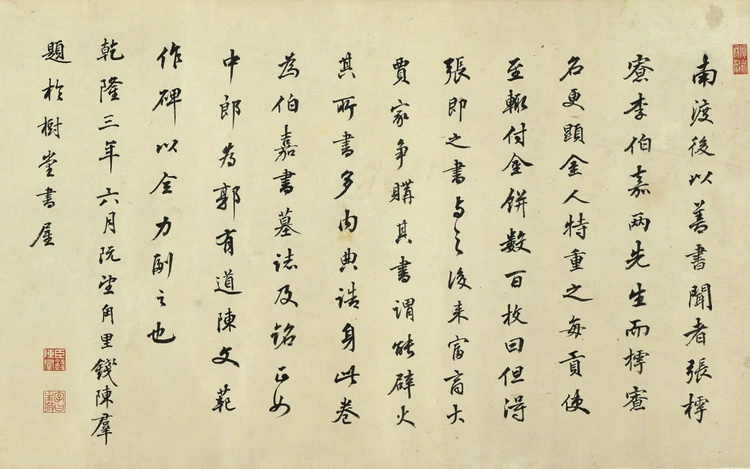 南渡後以善書聞者張樗
寮李伯嘉兩先生而樗寮
名更顕金人特重之每貢使
至輒付金餅数百枚曰但得
張即之書与之後来富商大
賈家争購其書謂能辟火
其所書多内典誥身此卷
為伯嘉書墓誌及銘正如
中郎為郭有道陳文範
作碑以全力副之也
乾隆三年六月既望甪里錢陳羣
題於樹堂書屋